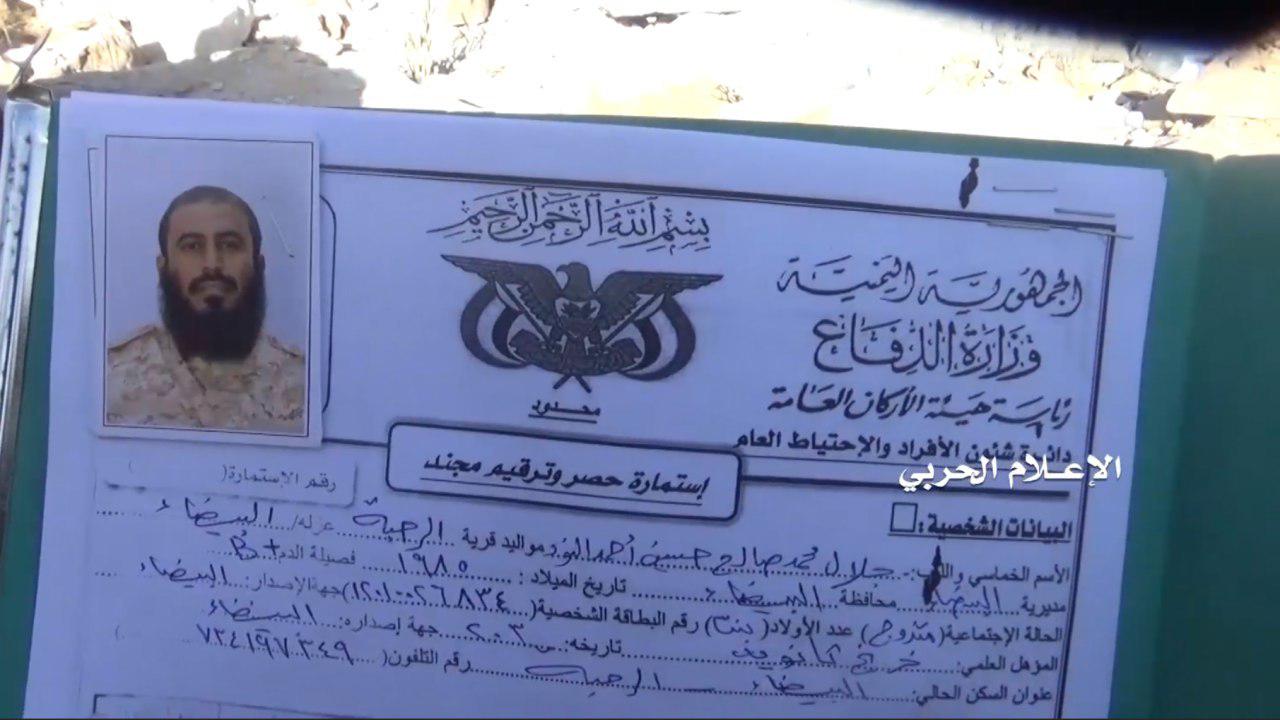 بسم الله الرحمن الرحيم
الجمهورية اليمنية
وزارة الدفاع
رئاسة هيئة الأركان العامة
دائرة شئون الأفراد والإحتياط العام
محدود
الإعلام الحربي
إستمارة حصر وترقيم مجند
رقم الإستمارة( )
البيانات الشخصية:
الأسم الخماسي واللقب: جلال محمد صالح حسين أحمد مواليد قرية الرحبة عزلة/ البيضاء
مديرية البيضاء محافظة البيضاء تاريخ الميلاد: ١٩٨٥ فصيلة الدم B+
الحالة الإجتماعية(متزوج) عدد الأولاد( ) رقم البطاقة الشخصية(١٢٠١٠٠٢٦٨٣٤) جهة الإصدار: البيضاء
المؤهل العلمي: خريج ثانوية تاريخه: ٢٠٠٣ جهة إصداره: البيضاء
عنوان السكن الحالي: البيضاء الرحبة رقم التلفون( ٧٣٤١٩٧٣٤٩ )